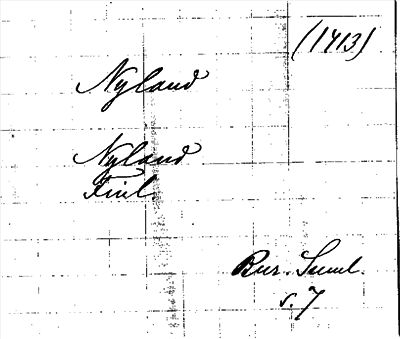 (1413)
Nyland
Nyland
Finl.
Bur. Suml.
s. 7